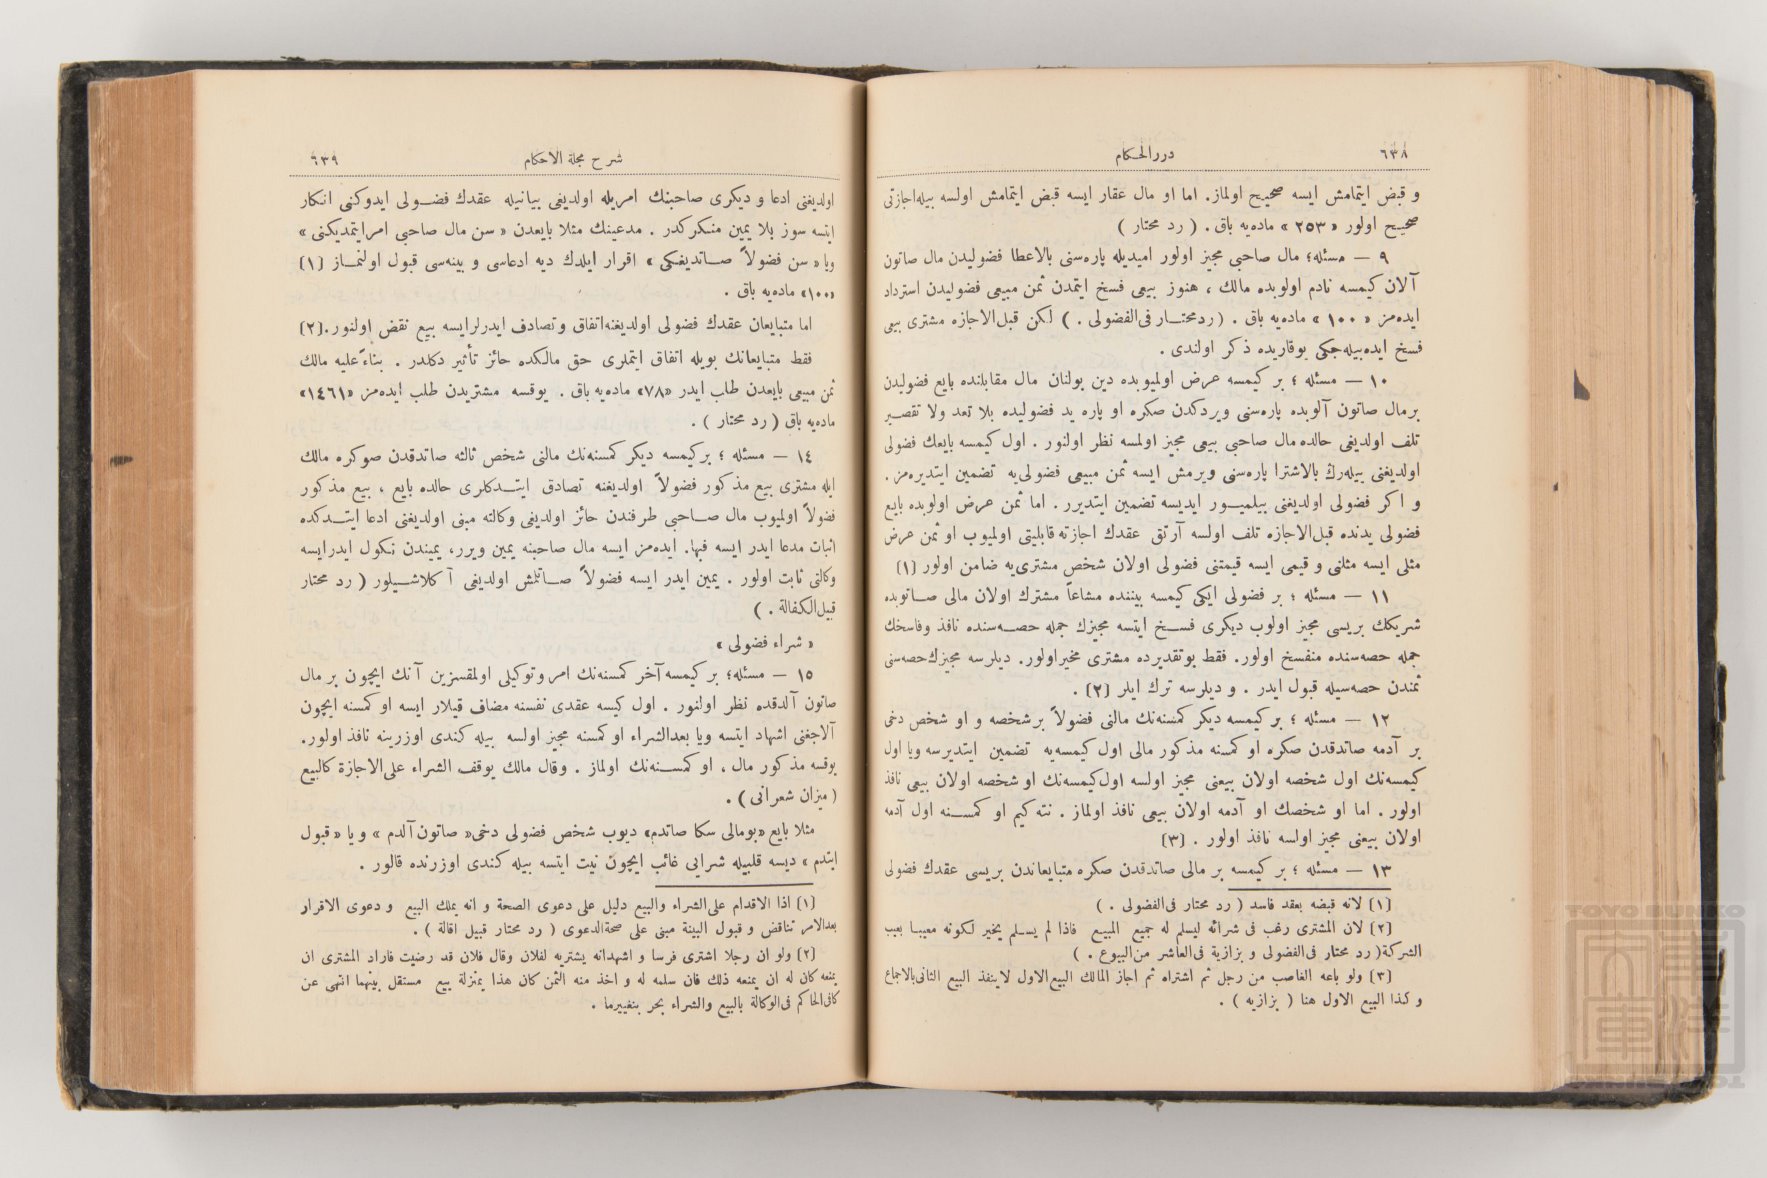 ٦٣٨
دررالحكام
و قبض ايتمامش ايسه صحيح اولماز. اما او مال عقار ايسه قبض ايتمامش اولسه بيله اجازتى
صحيح اولور « ٢٥٣ » ماده‌يه باق . ( رد محتار )
٩ — مسئله؛ مال صاحبى مجيز اولور اميديله پاره‌سنى بالاعطا فضوليدن مال صاتون
آلان كيمسه نادم اولوبده مالك ، هنوز بيعى فسخ ايتمدن ثمن مبيعى فضوليدن استرداد
ايده‌مز « ١٠٠ » ماده‌يه باق . ( ردمحتـار فى‌الفضولى . ) لكن قبل‌الاجازه مشترى بيعى
فسخ ايده‌بيله‌جكى يوقاريده ذكر اولندى .
١٠ — مسئله ؛ بر كيمسه عرض اولميوبده دين بولنان مال مقابلنده بايع فضوليدن
برمال صاتون آلوبده پاره‌سنى ويردكدن صكره او پاره يد فضوليده بلا تعد ولا تقصير
تلف اولديغى حالده مال صاحبى بيعى مجيز اولمسه نظر اولنور . اول كيمسه بايعك فضولى
اولديغنى بيله‌رك بالاشترا پاره‌سنى ويرمش ايسه ثمن مبيعى فضولى‌يه تضمين ايتديره‌مز .
و اكر فضولى اولديغنى بيلميـور ايديسه تضمين ايتديرر . اما ثمن عرض اولوبده بايع
فضولى يدنده قبل‌الاجازه تلف اولسه آرتق عقدك اجازته قابليتى اولميوب او ثمن عرض
مثلى ايسه مثلنى و قيمى ايسه قيمتنى فضولى اولان شخص مشترى‌يه ضامن اولور [١]
١١ — مسئله ؛ بر فضولى ايكى كيمسه بيننده مشاعاً مشترك اولان مالى صـاتوبده
شريكك بريسى مجيز اولوب ديكرى فسـخ ايتسه مجيزك جمله حصـه‌سنده نافذ وفاسخك
جمله حصه‌سنده منفسخ اولور. فقط بوتقديرده مشترى مخيراولور. ديلرسه مجيزك حصه‌سنى
ثمندن حصه‌سيله قبول ايدر . و ديلرسه ترك ايلر [٢] .
١٢ — مسئله ؛ بر كيمسه ديكر كمسنه‌نك مالنى فضولاً برشخصه و او شخص دخى
بر آدمه صاتدقدن صكره او كمسنه مذكور مالى اول كيمسه‌يه تضمين ايتديرسه ويا اول
كيمسه‌نك اول شخصه اولان بيعنى مجيز اولسه اول‌كيمسه‌نك او شخصه اولان بيعى نافذ
اولور . اما او شخصك او آدمه اولان بيعى نافذ اولماز . نته‌كيم او كمسـنه اول آدمه
اولان بيعنى مجيز اولسه نافذ اولور . [٣]
١٣ — مسئله ؛ بر كيمسه بر مالى صاتدقدن صكره متبايعاندن بريسى عقدك فضولى
[١] لانه قبضه بعقد فاسد ( رد محتار فى‌الفضولى . )
[٢] لان المشترى رغب فى شرائه ليسلم له جميع المبيع فاذا لم يسـلم يخير لكونه معيبا بعيب
الشركة ( رد محتار فى‌الفضولى و بزازية فى‌العاشر من‌البيوع . )
[٣] ولو باعه الغاصب من رجل ثم اشتراه ثم اجاز المالك البيع‌الاول لاينفذ البيع الثانى‌بالاجماع
و كذا البيع الاول هنا ( بزازيه ) .
شرح مجلة الاحكام
٦٣٩
اولديغنى ادعا و ديكرى صاحبنك امريله اولديغى بيانيله عقدك فضـولى ايدوكنى انكار
ايتسه سوز بلا يمين منكركدر . مدعينك مثلا بايعدن « سن مال صاحبى امرايتمديكنى »
ويا « سن فضولاً صـاتديغكى » اقرار ايلدك ديه ادعاسى و بينه‌سى قبول اولنمـاز [١]
«١٠٠» ماده‌يه باق .
اما متبايعان عقدك فضولى اولديغنه اتفاق وتصادف ايدرلرايسه بيع نقض اولنور.[٢]
فقط متبايعانك بويله اتفاق ايتملرى حق مالكده حائز تأثير دكلدر . بناءً عليه مالك
ثمن مبيعى بايعدن طلب ايدر «٧٨» ماده‌يه باق . يوقسه مشتريدن طلب ايده‌مز «١٤٦١»
ماده‌يه باق ( رد محتار ) .
١٤ — مسئله ؛ بركيمسه ديكر كمسنه‌نك مالنى شخص ثالثه صاتدقدن صوكره مالك
ايله مشترى بيع مذكور فضولاً اولديغنه تصادق ايتـدكلرى حالده بايع ، بيع مذكور
فضولاً اولميوب مال صـاحبى طرفندن حائز اولديغى وكالته مبنى اولديغنى ادعا ايتـدكده
اثبات مدعا ايدر ايسه فبها. ايده‌مز ايسه مال صاحبنه يمين ويرر، يميندن نكول ايدرايسه
وكالتى ثابت اولور . يمين ايدر ايسه فضولاً صـاتلمش اولديغى آكلاشـيلور ( رد محتار
قبيل‌الكفالة . )
« شراء فضولى »
١٥ — مسئله؛ بر كيمسه آخر كمسنه‌نك امر وتوكيلى اولمقسزين آنك ايچون بر مال
صاتون آلدقده نظر اولنور . اول كيسه عقدى نفسنه مضاف قيلار ايسه او كمسنه ايچون
آلاجغنى اشهاد ايتسه ويا بعدالشراء او كمسنه مجيز اولسه بيله كندى اوزرينه نافذ اولور.
يوقسه مذكور مال ، او كمسـنه‌نك اولماز . وقال مالك يوقف الشراء على‌الاجازة كالبيع
( ميزان شعرانى ) .
مثلا بايع «بومالى سكا صاتدم» ديوب شخص فضولى دخى« صاتون آلدم » و يا « قبول
ايتدم » ديسه قلبيله شرايى غائب ايچون نيت ايتسه بيله كندى اوزرنده قالور .
[١] اذا الاقدام على‌الشراء والبيع دليل على دعوى الصحة و انه يملك البيع و دعوى الاقرار
بعدالامر تناقض و قبول البينة مبنى على صحةالدعوى ( رد محتار قبيل اقالة ) .
[٢] ولو ان رجلا اشترى فرسا و اشهدانه يشتريه لفلان وقال فلان قد رضيت فاراد المشترى ان
يمنعه كان له ان يمنعه ذلك فان سلمه له و اخذ منه الثمن كان هذا بمنزلة بيع مستقل بينهما انتهى عن
كافى‌الحاكم فى‌الوكالة بالبيع والشراء بحر بتغييرما .
TOYO BUNKO